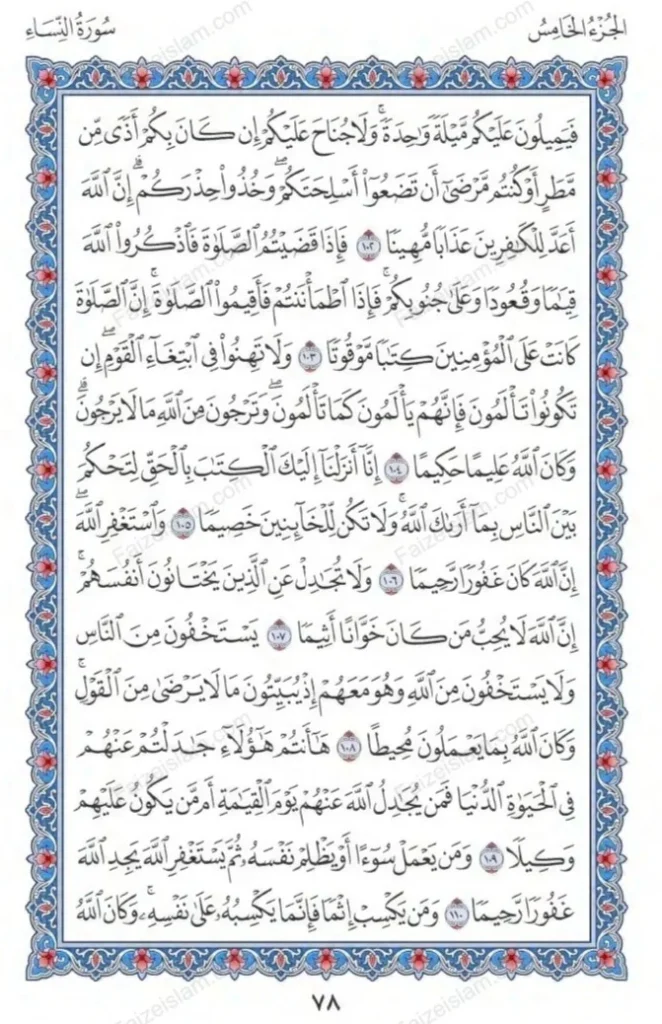 الجُزْءُ الخَامِسُ
سُورَةُ النِّسَاءِ
فَيَمِيلُونَ عَلَيْكُم مَّيْلَةً وَٰحِدَةً ۚ وَلَا جُنَاحَ عَلَيْكُمْ إِن كَانَ بِكُمْ أَذًى مِّن
مَّطَرٍ أَوْ كُنتُم مَّرْضَىٰٓ أَن تَضَعُوٓا۟ أَسْلِحَتَكُمْ ۖ وَخُذُوا۟ حِذْرَكُمْ ۗ إِنَّ ٱللَّهَ
أَعَدَّ لِلْكَٰفِرِينَ عَذَابًا مُّهِينًا ١٠٢ فَإِذَا قَضَيْتُمُ ٱلصَّلَوٰةَ فَٱذْكُرُوا۟ ٱللَّهَ
قِيَٰمًا وَقُعُودًا وَعَلَىٰ جُنُوبِكُمْ ۚ فَإِذَا ٱطْمَأْنَنتُمْ فَأَقِيمُوا۟ ٱلصَّلَوٰةَ ۚ إِنَّ ٱلصَّلَوٰةَ
كَانَتْ عَلَى ٱلْمُؤْمِنِينَ كِتَٰبًا مَّوْقُوتًا ١٠٣ وَلَا تَهِنُوا۟ فِى ٱبْتِغَآءِ ٱلْقَوْمِ ۖ إِن
تَكُونُوا۟ تَأْلَمُونَ فَإِنَّهُمْ يَأْلَمُونَ كَمَا تَأْلَمُونَ ۖ وَتَرْجُونَ مِنَ ٱللَّهِ مَا لَا يَرْجُونَ ۗ
وَكَانَ ٱللَّهُ عَلِيمًا حَكِيمًا ١٠٤ إِنَّآ أَنزَلْنَآ إِلَيْكَ ٱلْكِتَٰبَ بِٱلْحَقِّ لِتَحْكُمَ
بَيْنَ ٱلنَّاسِ بِمَآ أَرَىٰكَ ٱللَّهُ ۚ وَلَا تَكُن لِّلْخَآئِنِينَ خَصِيمًا ١٠٥ وَٱسْتَغْفِرِ ٱللَّهَ ۖ
إِنَّ ٱللَّهَ كَانَ غَفُورًا رَّحِيمًا ١٠٦ وَلَا تُجَٰدِلْ عَنِ ٱلَّذِينَ يَخْتَانُونَ أَنفُسَهُمْ ۚ
إِنَّ ٱللَّهَ لَا يُحِبُّ مَن كَانَ خَوَّانًا أَثِيمًا ١٠٧ يَسْتَخْفُونَ مِنَ ٱلنَّاسِ
وَلَا يَسْتَخْفُونَ مِنَ ٱللَّهِ وَهُوَ مَعَهُمْ إِذْ يُبَيِّتُونَ مَا لَا يَرْضَىٰ مِنَ ٱلْقَوْلِ ۚ
وَكَانَ ٱللَّهُ بِمَا يَعْمَلُونَ مُحِيطًا ١٠٨ هَٰٓأَنتُمْ هَٰٓؤُلَآءِ جَٰدَلْتُمْ عَنْهُمْ
فِى ٱلْحَيَوٰةِ ٱلدُّنْيَا فَمَن يُجَٰدِلُ ٱللَّهَ عَنْهُمْ يَوْمَ ٱلْقِيَٰمَةِ أَم مَّن يَكُونُ عَلَيْهِمْ
وَكِيلًا ١٠٩ وَمَن يَعْمَلْ سُوٓءًا أَوْ يَظْلِمْ نَفْسَهُۥ ثُمَّ يَسْتَغْفِرِ ٱللَّهَ يَجِدِ ٱللَّهَ
غَفُورًا رَّحِيمًا ١١٠ وَمَن يَكْسِبْ إِثْمًا فَإِنَّمَا يَكْسِبُهُۥ عَلَىٰ نَفْسِهِۦ ۚ وَكَانَ ٱللَّهُ
٧٨
Faizeislam.com